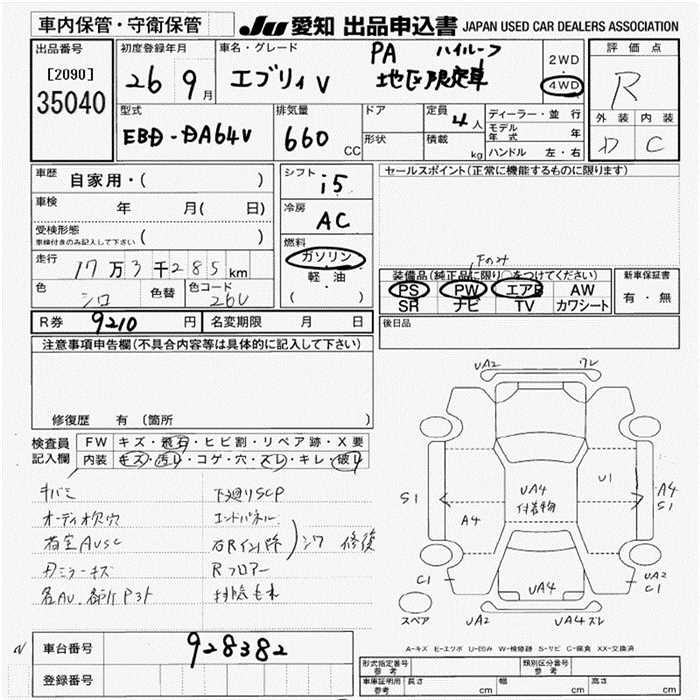 車内保管・守衛保管
JU 愛知 出品申込書 JAPAN USED CAR DEALERS ASSOCIATION
出品番号
[2090]
35040
初度登録年月
26 9月
車名・グレード
エブリィ V
PA ハイルーフ
地区限定車
2WD
・
4WD
評価点
R
外装 内装
D C
型式
EBD-DA64V
排気量
660 CC
ドア
形状
定員 4人
積載 kg
ディーラー・並行
モデル年式 年
ハンドル 左・右
車歴 自家用・( )
車検 年 月( 日)
受検形態
車検付きのみ記入して下さい ( )
走行 17万3千285km
色 シロ 色替 色コード 26U
シフト i5
冷房 AC
燃料
ガソリン
軽・油
( )
セールスポイント(正常に機能するものに限ります)
Fのみ
装備品(純正品に限り○をつけてください)
PS PW エアB AW
SR ナビ TV カワシート
新車保証書
有・無
R券 9210 円 名変期限 月 日
後日品
注意事項申告欄(不具合内容等は具体的に記入して下さい)
修復歴 有 (箇所 )
検査員記入欄
FW キズ・飛石・ヒビ割・リペア跡・X要
内装 キズ・汚レ・コゲ・穴・スレ・キレ・破レ
キバミ
オーディオ欠穴
荷室AUSC
下廻りSCP
エンドパネル
Rフロアー
修復
UA2
S1
A4
UA4
付着物
U1
A4
S1
C1
UA4
UA2
C1
スペア
UA2
UA4ズレ
A-キズ E-エクボ U-凹み W-補修跡 S-サビ C-腐食 XX-交換済
車台番号 928382
登録番号
形式指定番号
参考
類別区分番号
参考
車庫証明用
参考
長さ cm 幅 cm 高さ cm